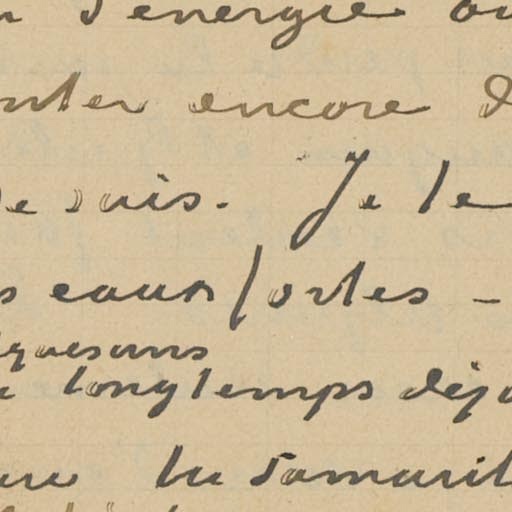 d'energie ou
nter encore d
De suis. Je te
s eaux fortes –
quesuns
longtemps déjà
tu Samarit